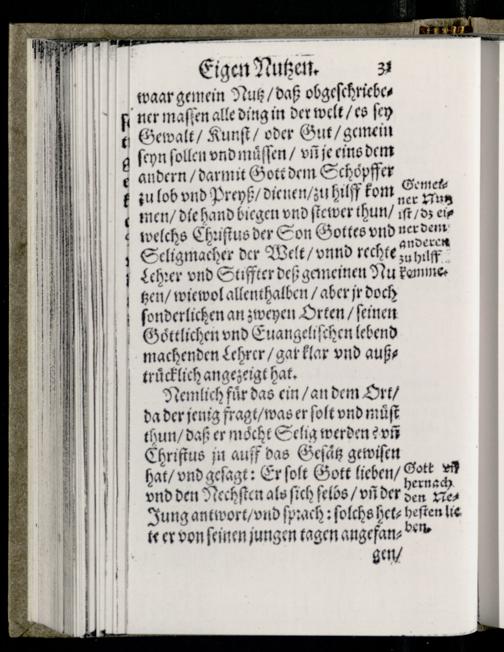 Eigen Nutzen. 31
waar gemein Nutz/daß obgeschriebe-
ner massen alle ding in der welt/es sey
Gewalt/Kunst/oder Gut/gemein
seyn sollen vnd müssen/vñ je eins dem
andern/darmit Gott dem Schöpffer
zu lob vnd Preyß/dienen/zu hilff kom
men/die hand biegen vnd stewer thun/
welchs Christus der Son Gottes vnd
Seligmacher der Welt/vnnd rechte
Lehrer vnd Stiffter deß gemeinen Nu
tzen/wiewol allenthalben/aber jr doch
sonderlichen an zweyen Orten/seinen
Göttlichen vnd Euangelischen lebend
machenden Lehrer/gar klar vnd auß-
trücklich angezeigt hat.
Nemlich für das ein/an dem Ort/
da der jenig fragt/was er solt vnd müst
thun/daß er möcht Selig werden? vñ
Christus jn auff das Gesätz gewisen
hat/vnd gesagt: Er solt Gott lieben/
vnd den Nechsten als sich selbs/vñ der
Jung antwort/vnd sprach: solchs het-
te er von seinen jungen tagen angefan-
gen/
Gemei-
ner Nutz
ist/dz ei-
ner dem
anderen
zu hilff
komme.
Gott vñ
hernach
den Ne-
hesten lie
ben.